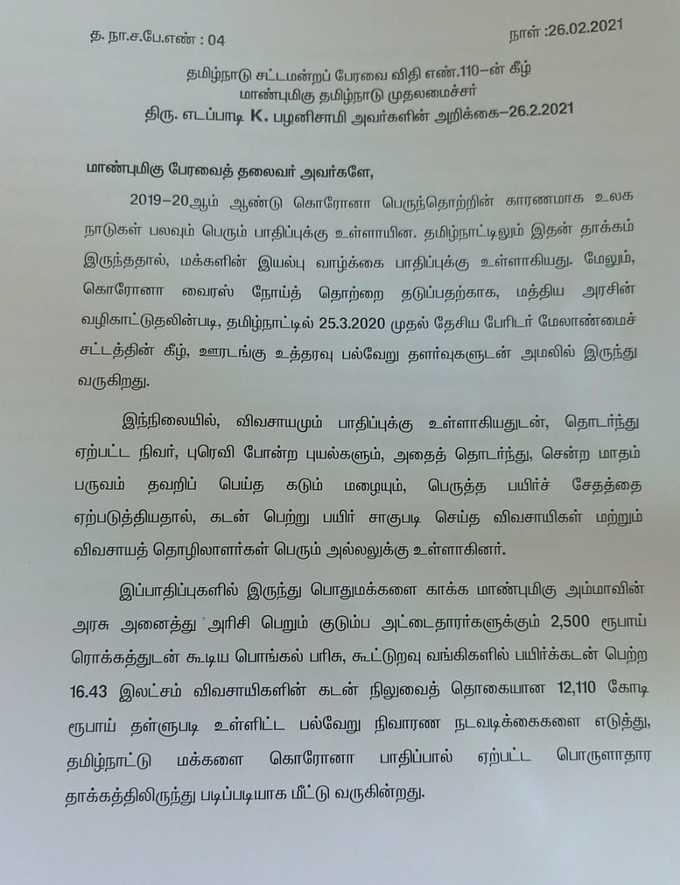 த. நா.ச.பே.எண் : 04
நாள் :26.02.2021
தமிழ்நாடு சட்டமன்றப் பேரவை விதி எண்.110-ன் கீழ்
மாண்புமிகு தமிழ்நாடு முதலமைச்சர்
திரு. எடப்பாடி K. பழனிசாமி அவர்களின் அறிக்கை-26.2.2021
மாண்புமிகு பேரவைத் தலைவர் அவர்களே,
2019-20ஆம் ஆண்டு கொரோனா பெருந்தொற்றின் காரணமாக உலக
நாடுகள் பலவும் பெரும் பாதிப்புக்கு உள்ளாயின. தமிழ்நாட்டிலும் இதன் தாக்கம்
இருந்ததால், மக்களின் இயல்பு வாழ்க்கை பாதிப்புக்கு உள்ளாகியது. மேலும்,
கொரோனா வைரஸ் நோய்த் தொற்றை தடுப்பதற்காக, மத்திய அரசின்
வழிகாட்டுதலின்படி, தமிழ்நாட்டில் 25.3.2020 முதல் தேசிய பேரிடர் மேலாண்மைச்
சட்டத்தின் கீழ், ஊரடங்கு உத்தரவு பல்வேறு தளர்வுகளுடன் அமலில் இருந்து
வருகிறது.
இந்நிலையில், விவசாயமும் பாதிப்புக்கு உள்ளாகியதுடன், தொடர்ந்து
ஏற்பட்ட நிவர், புரெவி போன்ற புயல்களும், அதைத் தொடர்ந்து, சென்ற மாதம்
பருவம் தவறிப் பெய்த கடும் மழையும், பெருத்த பயிர்ச் சேதத்தை
ஏற்படுத்தியதால், கடன் பெற்று பயிர் சாகுபடி செய்த விவசாயிகள் மற்றும்
விவசாயத் தொழிலாளர்கள் பெரும் அல்லலுக்கு உள்ளாகினர்.
இப்பாதிப்புகளில் இருந்து பொதுமக்களை காக்க மாண்புமிகு அம்மாவின்
அரசு அனைத்து அரிசி பெறும் குடும்ப அட்டைதாரர்களுக்கும் 2,500 ரூபாய்
ரொக்கத்துடன் கூடிய பொங்கல் பரிசு, கூட்டுறவு வங்கிகளில் பயிர்க்கடன் பெற்ற
16.43 இலட்சம் விவசாயிகளின் கடன் நிலுவைத் தொகையான 12,110 கோடி
ரூபாய் தள்ளுபடி உள்ளிட்ட பல்வேறு நிவாரண நடவடிக்கைகளை எடுத்து,
தமிழ்நாட்டு மக்களை கொரோனா பாதிப்பால் ஏற்பட்ட பொருளாதார
தாக்கத்திலிருந்து படிப்படியாக மீட்டு வருகின்றது.